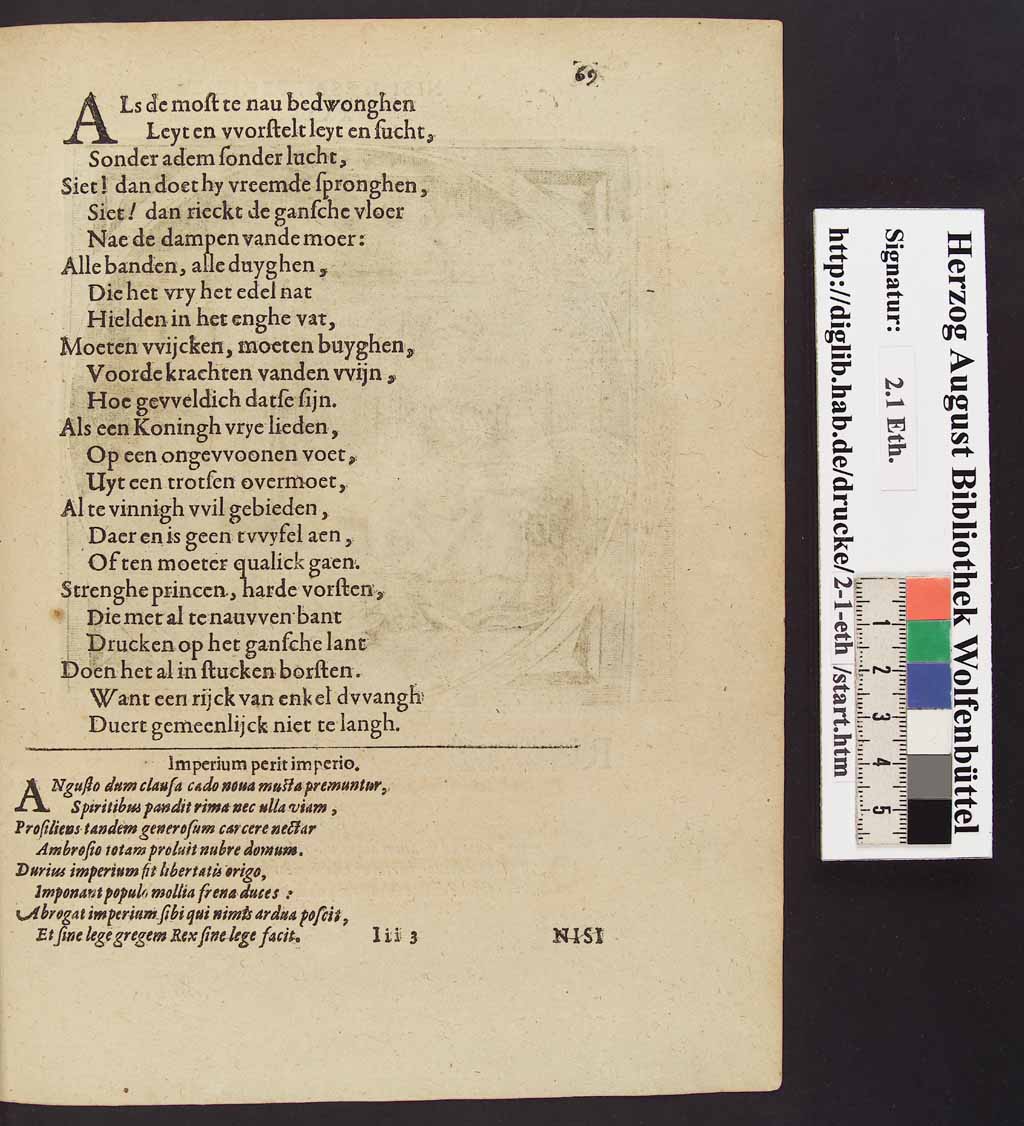 69
ALs de most te nau bedwonghen
Leyt en vvorstelt leyt en sucht,
Sonder adem sonder lucht,
Siet! dan doet hy vreemde spronghen,
Siet! dan rieckt de gansche vloer
Nae de dampen vande moer:
Alle banden, alle duyghen,
Die het vry het edel nat
Hielden in het enghe vat,
Moeten vvijcken, moeten buyghen,
Voor de krachten vanden vvijn,
Hoe gevveldich datse sijn.
Als een Koningh vrye lieden,
Op een ongevvoonen voet,
Uyt een trotsen overmoet,
Al te vinnigh vvil gebieden,
Daer en is geen tvvyfel aen,
Of ten moeter qualick gaen.
Strenghe princen, harde vorsten,
Die met al te nauvven bant
Drucken op het gansche lant
Doen het al in stucken borsten.
Want een rijck van enkel dvvangh
Duert gemeenlijck niet te langh.
Imperium perit imperio.
ANgusto dum clausa cado noua musta premuntur,
Spiritibus pandit rima nec ulla viam,
Prosiliens tandem generosum carcere nectar
Ambrosio totam proluit nubre domum.
Durius imperium fit libertatis origo,
Imponant populo mollia frena duces:
Abrogat imperium sibi qui nimis ardua poscit,
Et sine lege gregem Rex sine lege facit.
Iii 3
NISI
Herzog August Bibliothek Wolfenbüttel
Signatur: 2.1 Eth.
http://diglib.hab.de/drucke/2-1-eth /start.htm
1 2 3 4 5